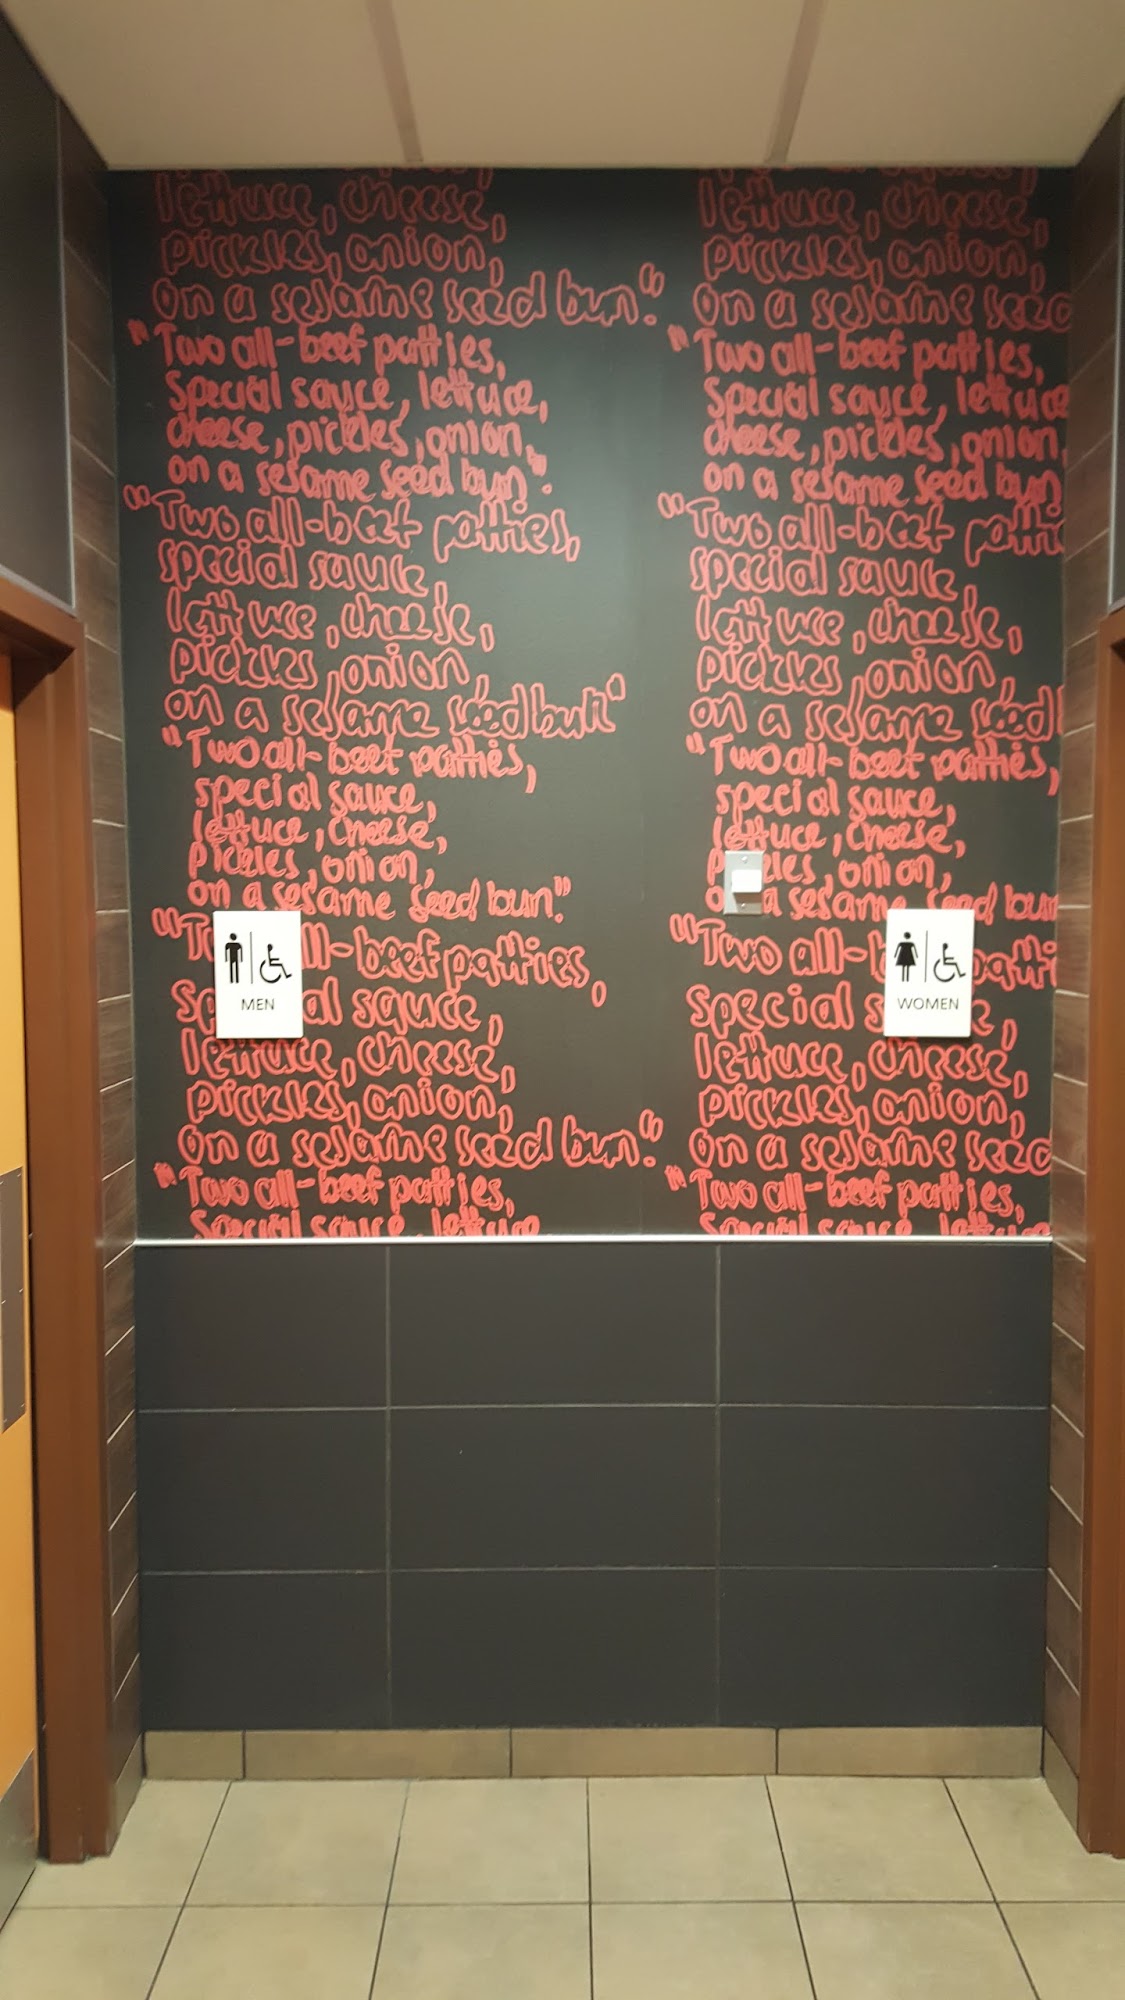 lettuce, cheese,
pickles, onion,
on a sesame seed bun."
"Two all-beef patties,
special sauce, lettuce,
cheese, pickles, onion,
on a sesame seed bun".
"Two all-beef patties,
special sauce,
lettuce, cheese,
pickles, onion,
on a sesame seed bun"
"Two all-beef patties,
special sauce,
lettuce, cheese,
pickles, onion,
on a sesame seed bun."
all-beef patties,
sauce,
lettuce, cheese,
pickles, onion,
on a sesame seed bun."
"Two all-beef patties,
special sauce, lettuce
MEN
lettuce, cheese,
pickles, onion,
on a sesame seed
"Two all-beef patties,
special sauce, lettuce
cheese, pickles, onion,
on a sesame seed bun
"Two all-beef patti
special sauce,
lettuce, cheese,
pickles, onion
on a sesame seed
"Two all-beef patties,
special sauce,
lettuce, cheese,
onion,
a sesame seed bun
"Two all- patti
special
lettuce, cheese,
pickles, onion,
on a sesame seed
"Two all-beef patties,
special sauce, lettuce
WOMEN